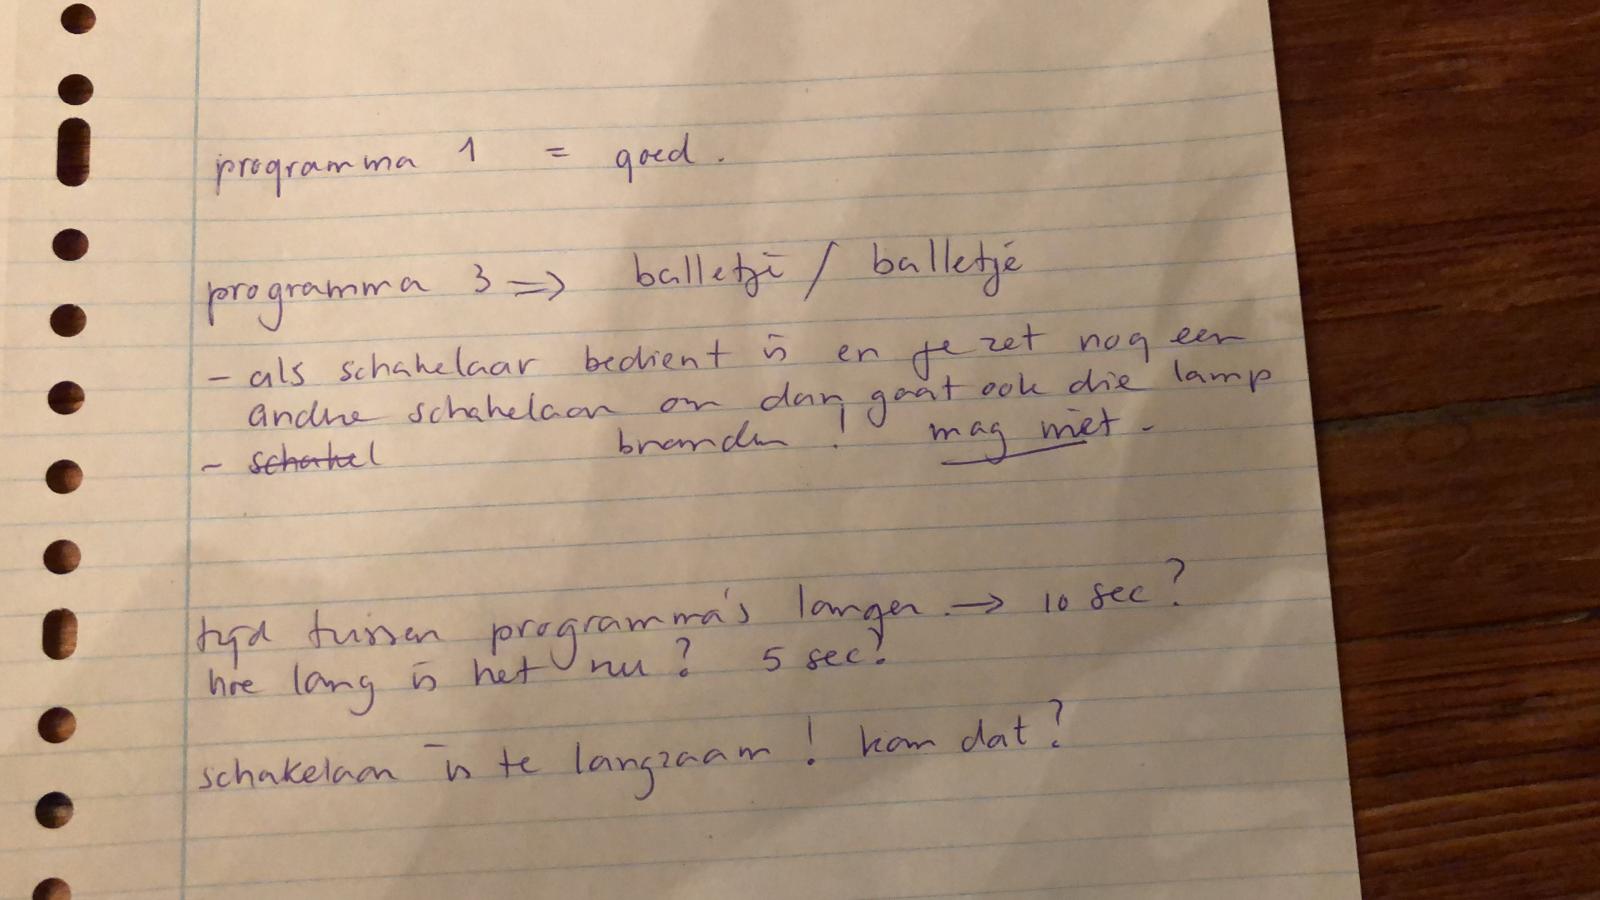 programma 1 = goed.
programma 3 => balletje / balletje
- als schakelaar bedient is en je zet nog een
andre schakelaar om dan gaat ook die lamp
branden! mag niet.
- schakel
tijd tussen programma's langer. → 10 sec?
hoe lang is het nu? 5 sec?
schakelaar is te langzaam! kan dat?